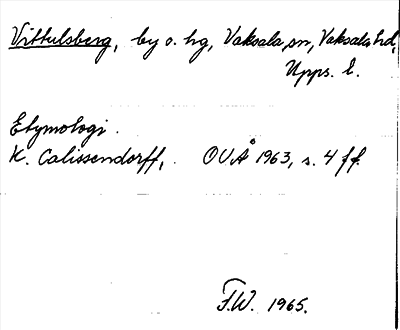 Vittulsberg, by o. hg, Vaksala sn, Vaksala hd,
Upps. l.
Etymologi.
K. Calissendorff, OUÅ 1963, s. 4 ff.
F.W. 1965.